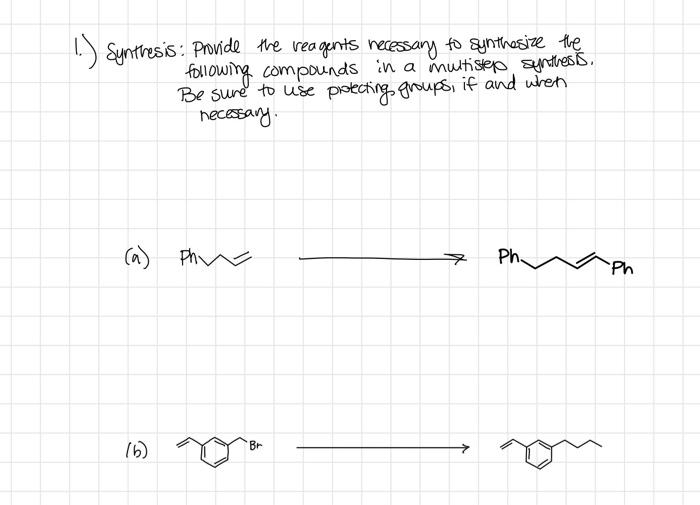 1.) Synthesis: Provide the reagents necessary to synthesize the
following compounds in a multistep synthesis.
Be sure to use protecting groups, if and when
necessary.
(a) Ph Ph Ph
(b) Br